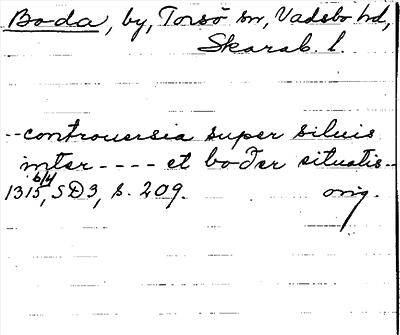 Boda, by, Torsö sn, Vadsbo hd,
Skarab. l.
-- controuersia super siluis
inter ---- et boðer situatis --
1315 6/4, SD3, s. 209. orig.